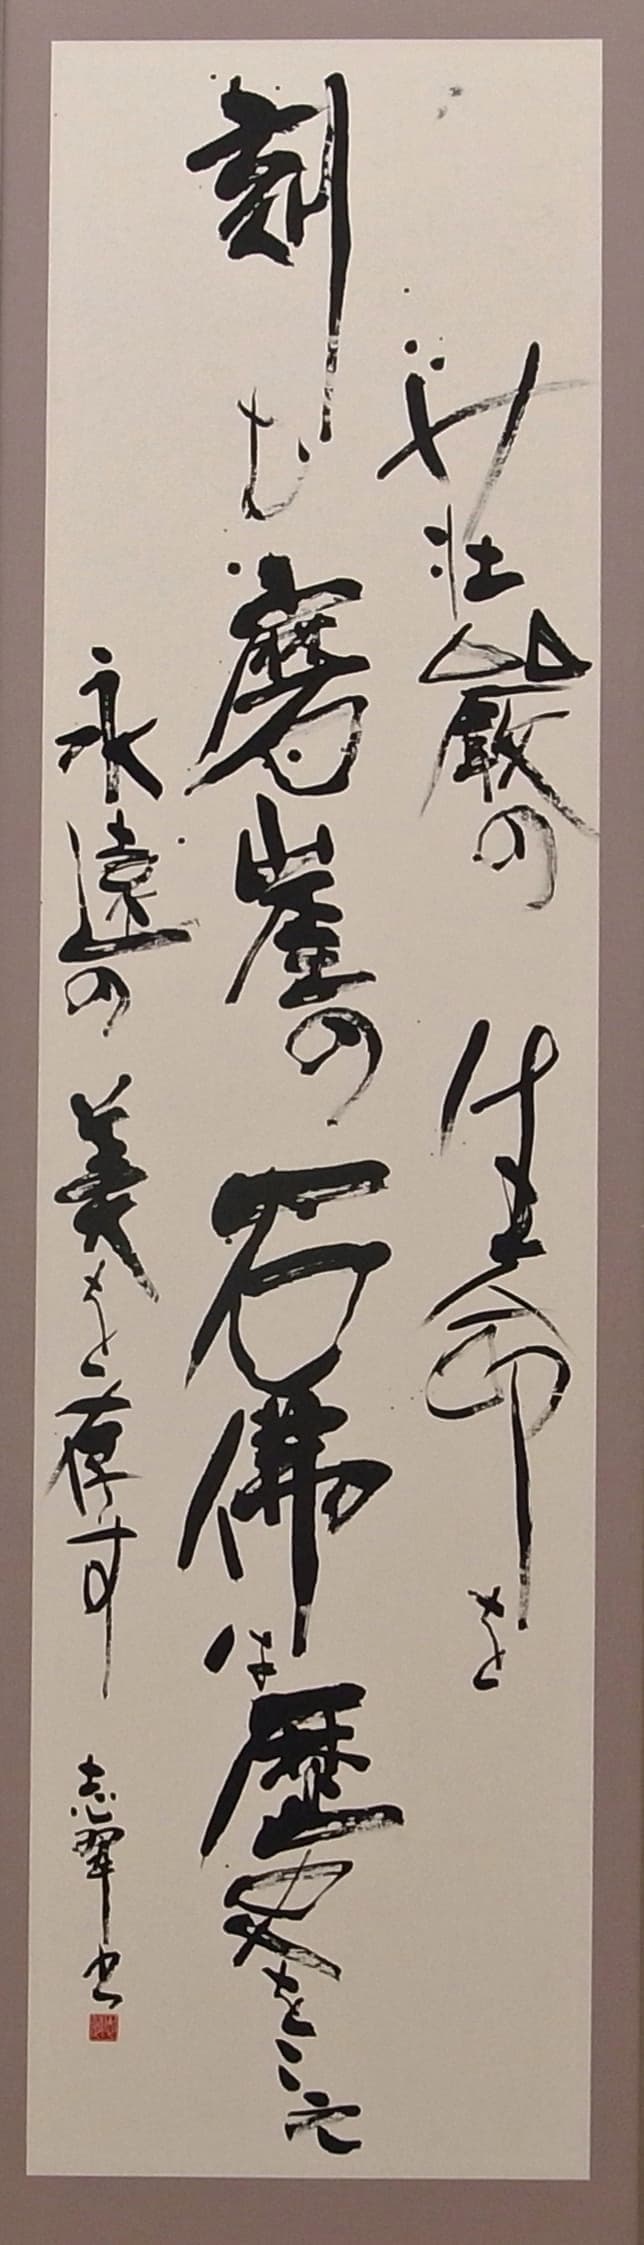 壮巌の生命を
刻む磨崖の石佛は歴史をこえ
永遠の美を す
志翠書